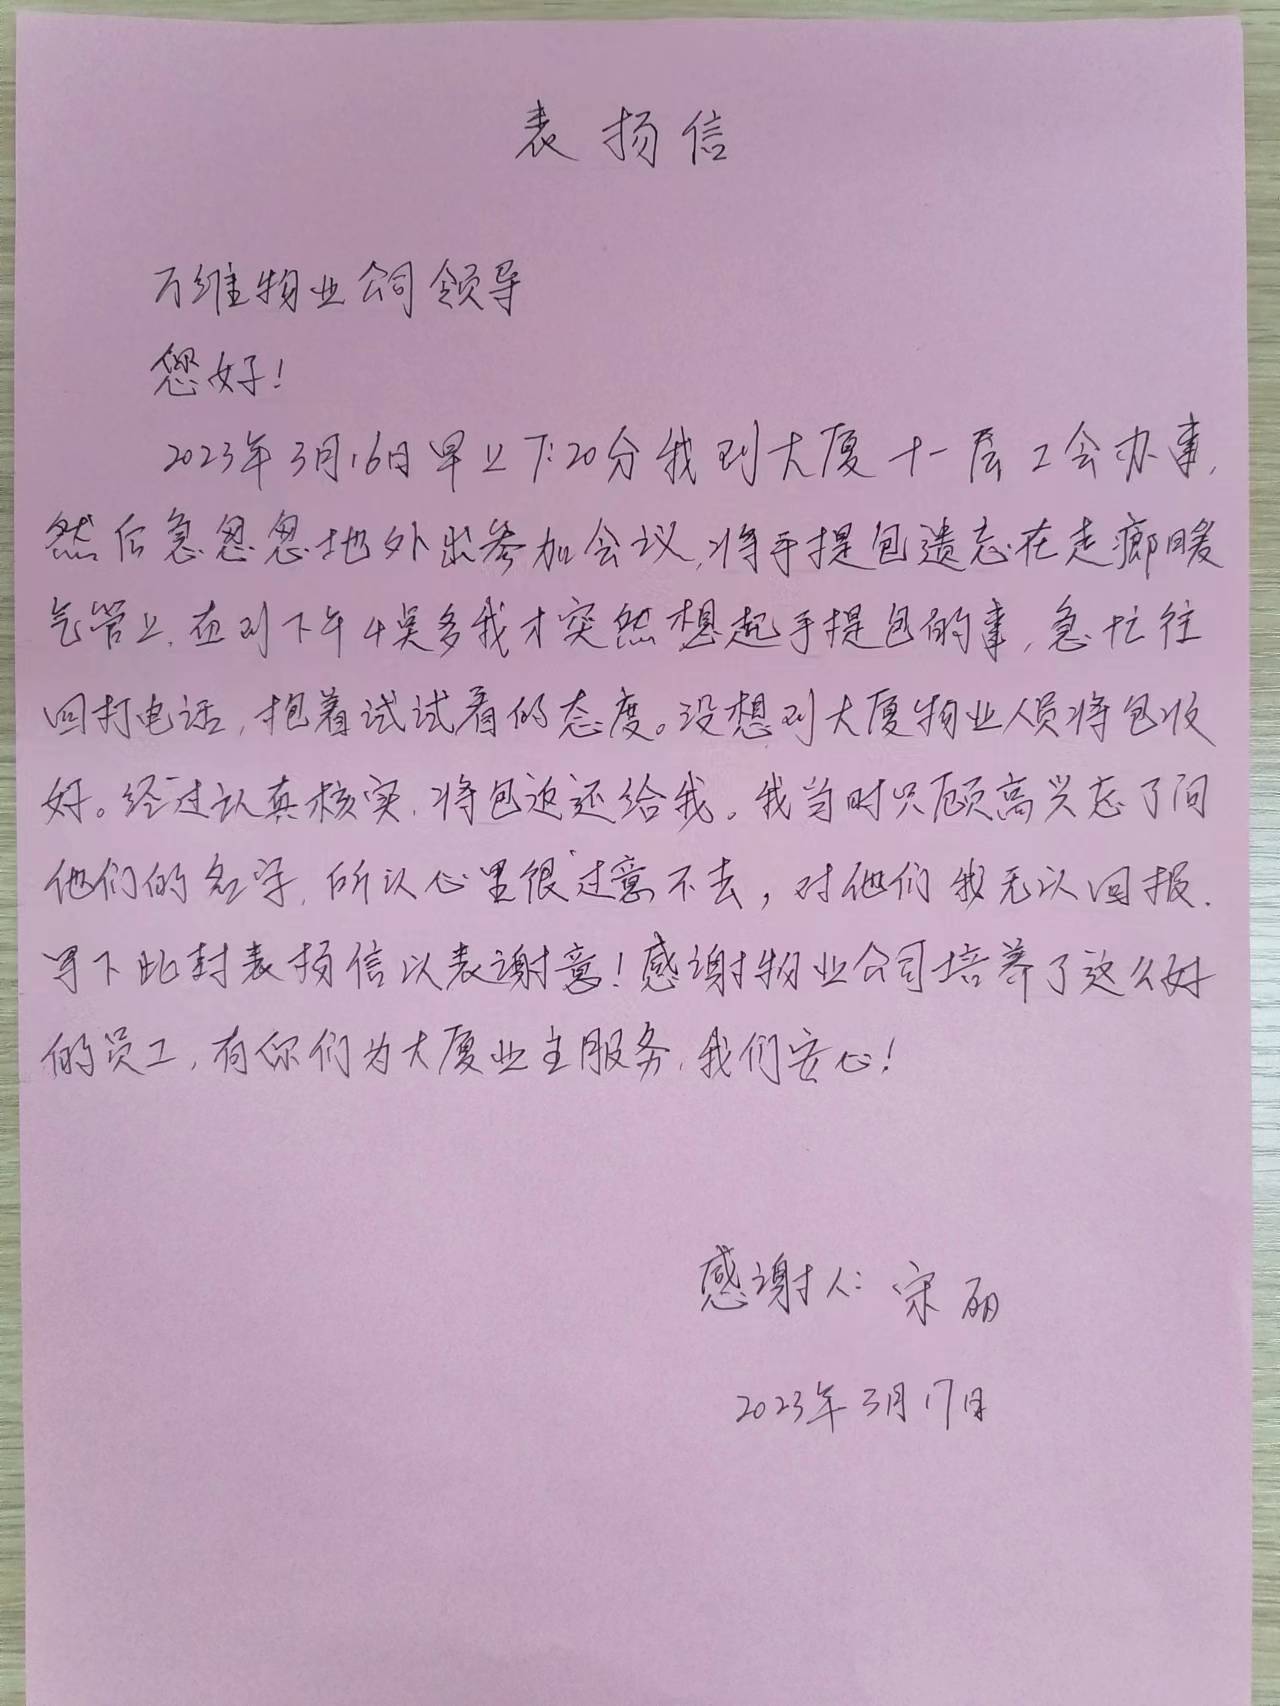 表扬信
万维物业公司领导
您好!
2023年3月16日早上7:20分我到大厦十一层工会办事,
然后急忽忽地外出参加会议,将手提包遗忘在走廊暖
气管上,直到下午4点多我才突然想起手提包的事,急忙往
回打电话,抱着试试看的态度。没想到大厦物业人员将包收
好。经过认真核实,将包返还给我。我当时只顾高兴忘了问
他们的名字,所以心里很过意不去,对他们我无以回报,
写下此封表扬信以表谢意!感谢物业公司培养了这么好
的员工,有你们为大厦业主服务,我们安心!
感谢人:宋丽
2023年3月17日